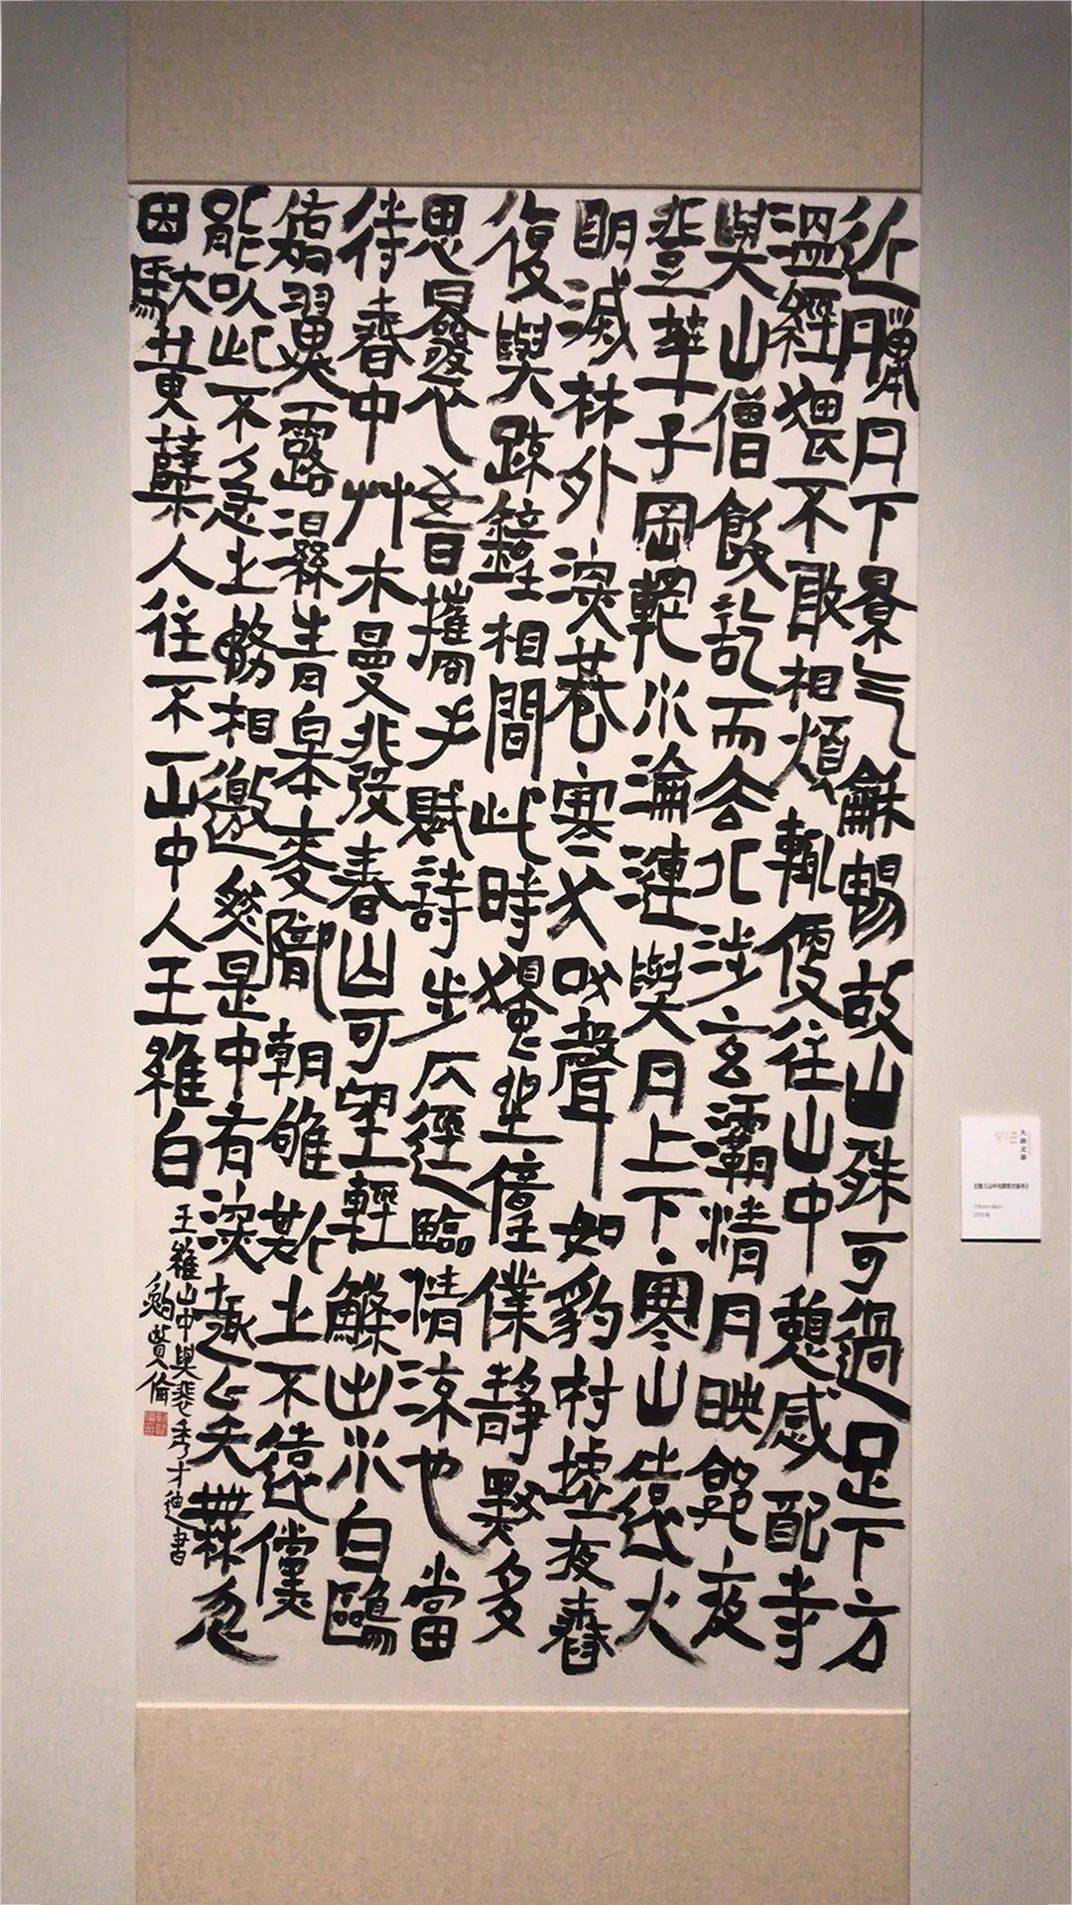 近臘月下景气龢暢故山殊可過足下方
溫經猥不敢相煩輒便往山中憩感配寺
與山僧飯訖而去北涉玄灞清月映郭夜
登華子岡輞水淪漣與月上下寒山遠火
明滅林外深巷寒犬吠聲如豹村墟夜舂
復與疎鐘相間此時獨坐僮僕靜默多
思曩昔攜手賦詩步仄徑臨清流也當
待春中艸木曼發春山可望輕鯈出水白鷗
矯翼露濕青皋麥隴朝雊斯之不遠儻
能以此不急之務相邀然是中有深趣矣無忽
因馱黃蘗人往不一山中人王維白
王維山中與裴秀才迪書
鮑賢倫